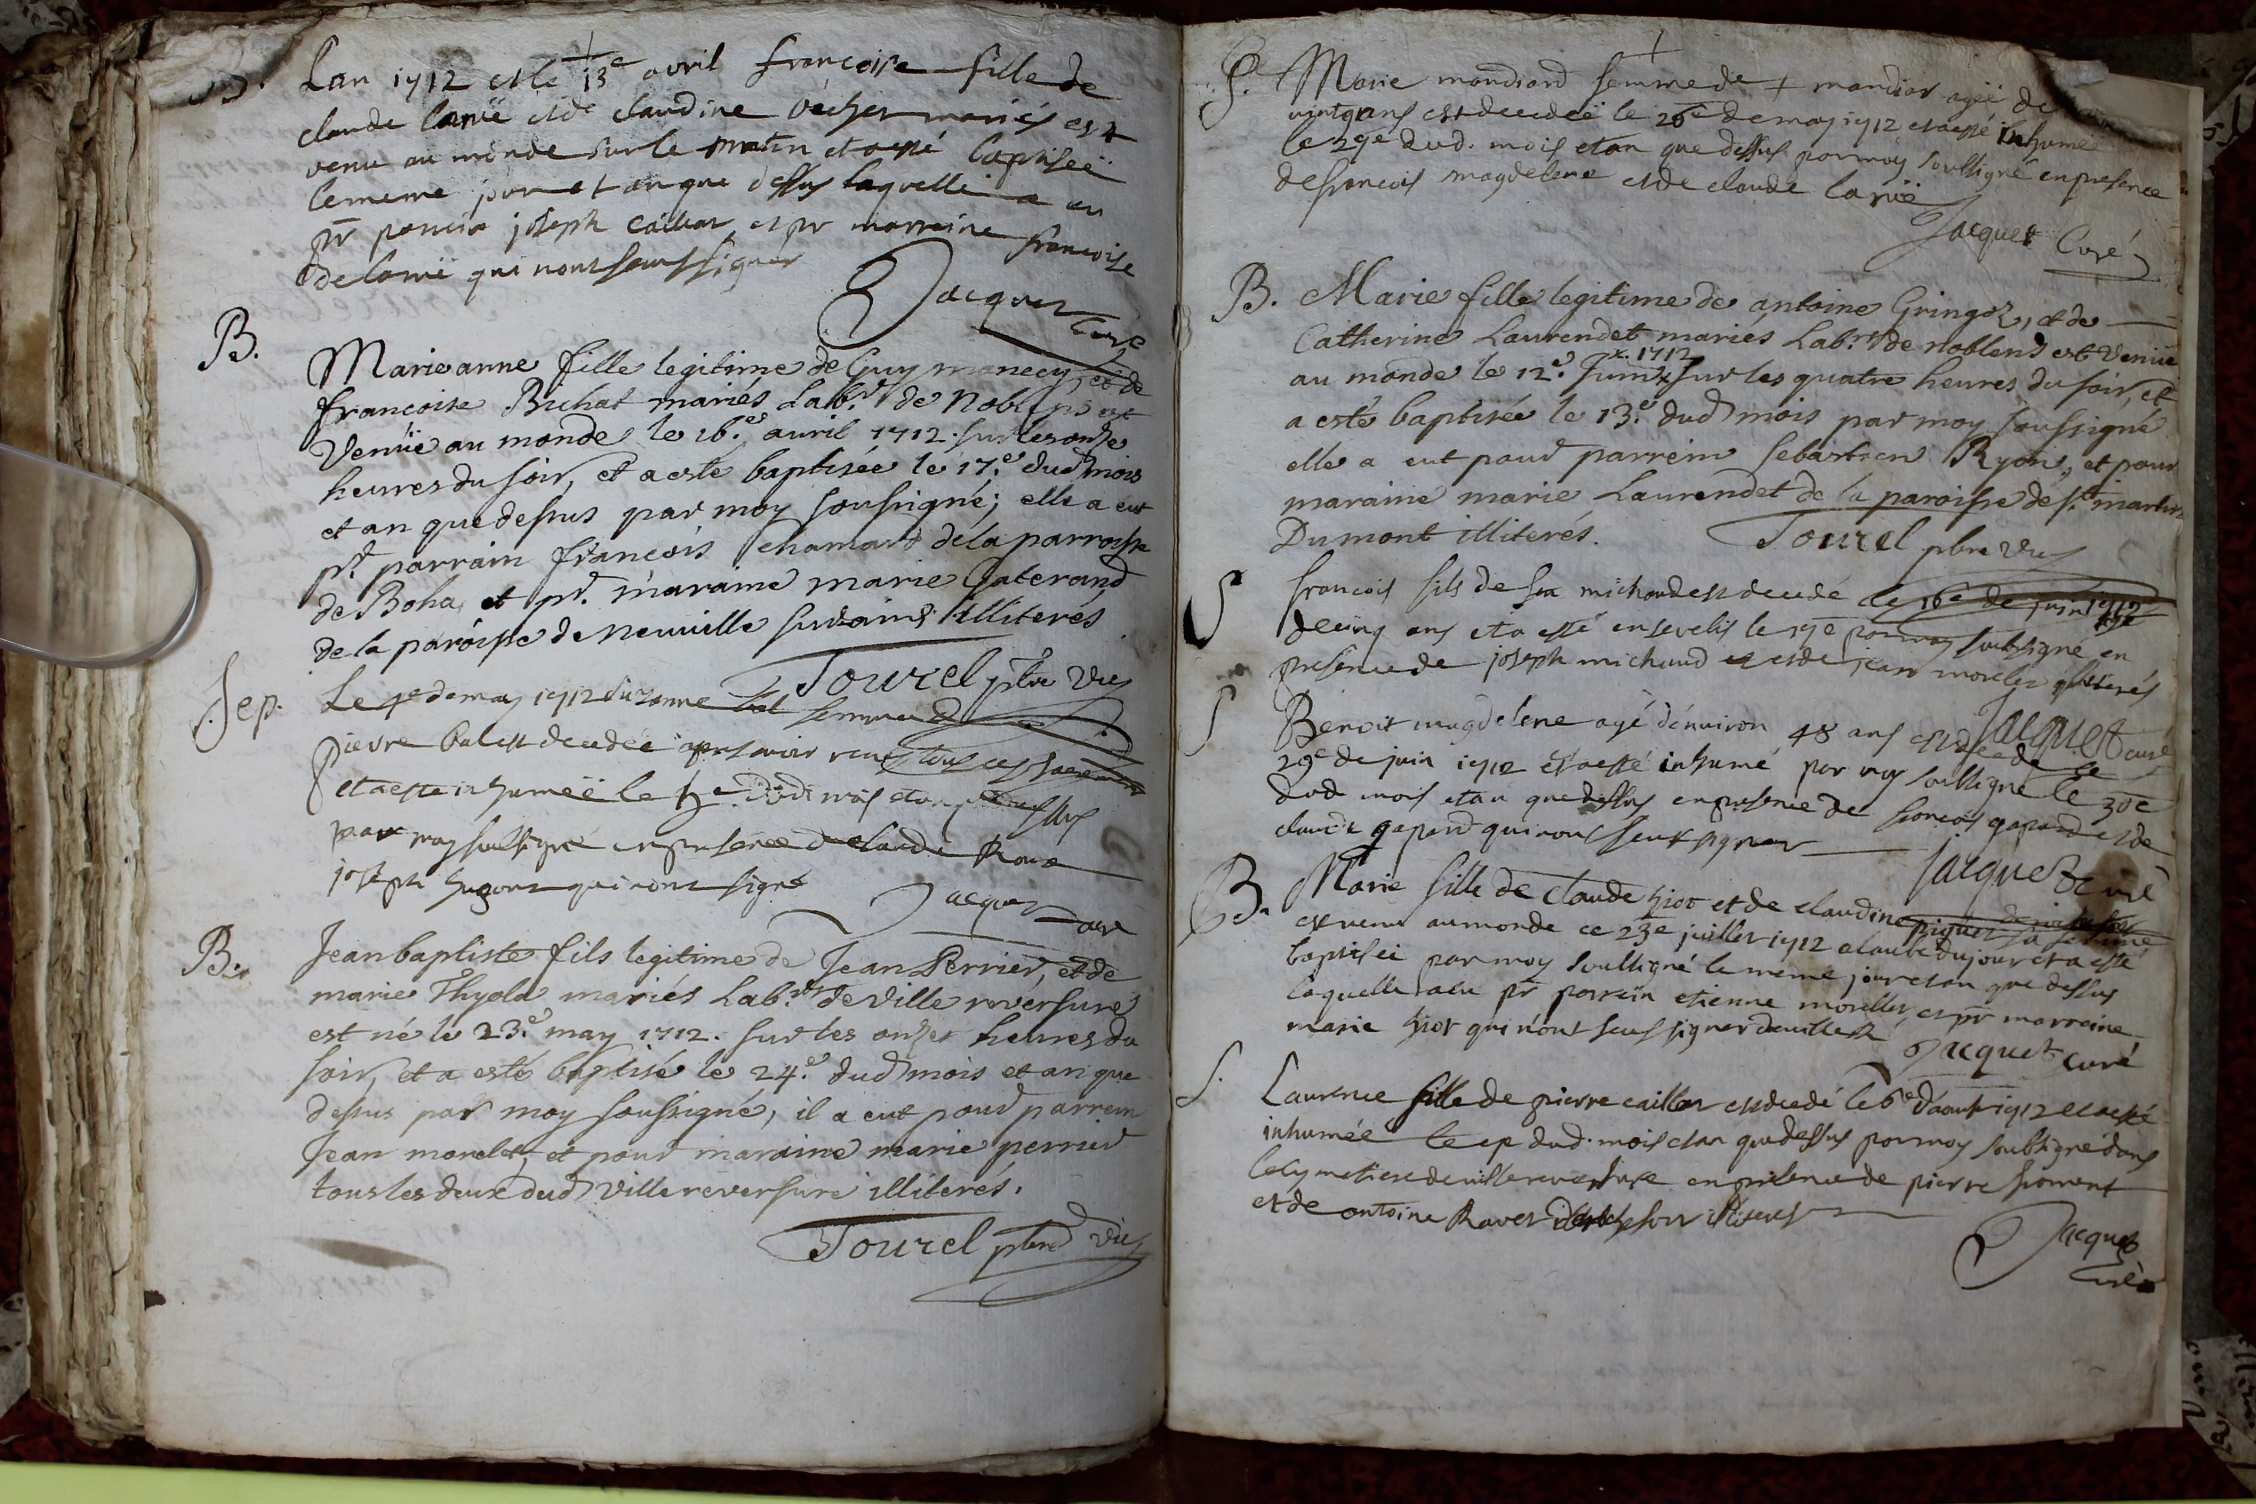 B. Lan 1712 et le 13e avril francoise fille de
claude laruë et de claudine vecher mariés est
venu au monde sur le matin et a esté baptiseë
le meme jour et an que dessus laquelle a eu
pr parein joseph caillat et pr marreine francoise
de laruë qui nont sceu signer
Jacquet
Curé
B.
Marieanne fille legitime de Guy monecy, et de
francoise Buhat mariés Lab.rs de Noblens est
Venüe au monde le 16.e avril 1712. sur les onze
heures du soir, et a esté baptisée le 17.e dud mois
et an que dessus par moy soussigné; elle a eut
pr. parrain françois chamard de la parroisse
de Boha, et pr. maraine marie
de la paroisse de neuville surains illiterés
Tourel ptre Vic
Sep. Le 4e de may 1712 suzanne bal femme de
pierre bal est decedeë apres avoir reçu tous ces sacrements
et a esté inhumeë le 5e dudi mois et an que dessus
par moy soussigné en presence de claude Roux
joseph hugont qui n'ont signé
Jacquet
curé
B.
Jean baptiste fils legitime de Jean Perrier, et de
marie Thyola mariés Lab.rs de Ville reversure
est né le 23.e may 1712. sur les onzes heures du
soir, et a esté baptisé le 24.e dud mois et an que
dessus par moy soussigné, il a eut pour parrein
Jean morelet, et pour maraine marie perrier
tous les deux dud Ville reversure illiterés.
Tourel ptre Vic
S. Marie mandiand femme de + mandiar ageë de
vint ans est decedeë le 28e de may 1712 et a esté inhumeë
le 29e dud. mois et an que dessus par moy soussigné en presence
de francois magdelene et de claude laruë
Jacquet Curé
B. Marie fille legitime de antoine Gringoz, et de
Catherine Laurendet mariés Lab.rs de noblens est Venüe
x. 1712
au monde le 12.e Juin x sur les quatre heures du soir, et
a esté baptisée le 13.e dud mois par moy soussigné
elle a eut pour parrein sebastien Ryon, et pour
maraine marie Laurendet de la paroisse de st. martin
Dumont illiterés.
Tourel ptre Vic
S francois fils de michaud est decedé le 16e de juin 1712 agé
de cinq ans et a esté ensevelis le 17e par moy soubsigné en
presence de joseph michaud et de jean morelet illiterés
Jacquet curé
S Benoit magdelene agé d'environ 48 ans est decedé le
29e de juin 1712 et a esté inhumé par moy soussigné le 30e
dud mois et an que dessus en presence de francois gapard et de
claude gapard qui nont sceut signer
Jacquet curé
B. Marie fille de claude hiot et de claudine piquet sa femme
est venu au monde ce 23e juillet 1712 a laube du jour et a esté
baptiseë par moy soussigné le meme jour et an que dessus
laquelle a eu pr parrein etienne morellet et pr marreine
marie hiot qui n'ont sceu signer
Jacquet curé
S. Laurence fille de pierre caillat est decedé le 6e d'aoust 1712 et a esté
inhumée le 7e dud. mois et an que dessus par moy soubsigné dans
le cymetiere de villereversure en presence de pierre froment
et de antoine Ravet illiterés
Jacquet
curé